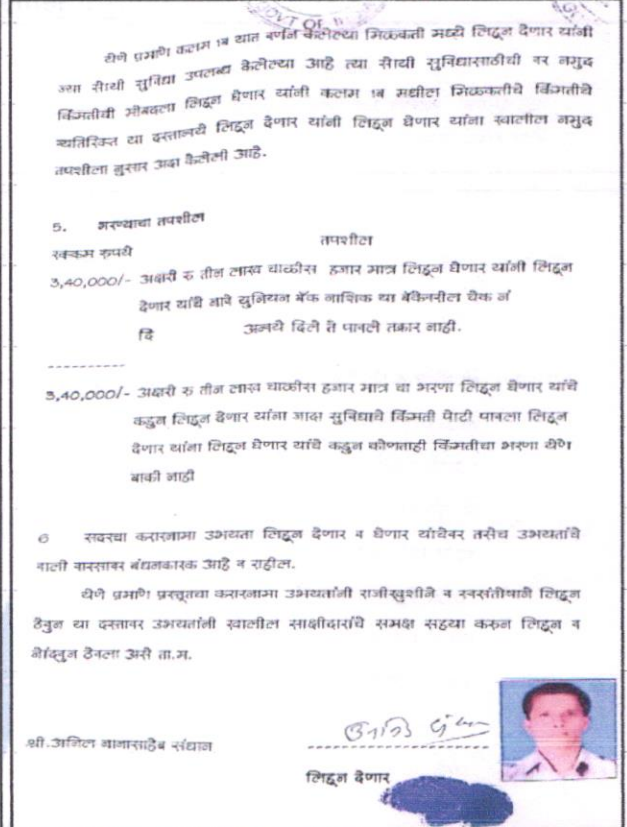 GOVT OF
येणे प्रमाणे कलम १ब यात वर्णन केलेल्या मिळकती मध्ये लिहून देणार यांनी
ज्या सोयी सुविधा उपलब्ध केलेल्या आहे त्या सोयी सुविधासाठीची वर नमुद
किंमतीची मोबदला लिहून घेणार यांनी कलम १ब मधील मिळकतीचे किंमतीचे
व्यतिरिक्त या दस्तान्वये लिहून देणार यांनी लिहून घेणार यांना खालील नमुद
तपशीला नुसार अदा केलेली आहे.
5. भरण्याचा तपशील
रक्कम रुपये तपशील
3,40,000/- अक्षरी रु तीन लाख चाळीस हजार मात्र लिहून घेणार यांनी लिहून
देणार यांचे नावे युनियन बँक नाशिक या बँकेवरील चेक नं
दि अन्वये दिले ते पावले तकार नाही.
----------
3,40,000/- अक्षरी रु तीन लाख चाळीस हजार मात्र चा भरणा लिहून घेणार यांचे
कडुन लिहून देणार यांना जादा सुविधाचे किंमती पोटी पावला लिहून
देणार यांना लिहून घेणार यांचे कडुन कोणताही किंमतीचा भरणा येणे
बाकी नाही
6 सदरचा करारनामा उभयता लिहून देणार व घेणार यांचेवर तसेच उभयतांचे
वाली वारसावर बंधनकारक आहे व राहील.
येणे प्रमाणे प्रस्तूतचा करारनामा उभयतांनी राजीखुशीने व स्वसंतोषाने लिहून
ठेवुन या दस्तावर उभयतांनी खालील साक्षीदारांचे समक्ष सहया करुन लिहून व
नोंदवुन ठेवला असे ता.म.
श्री.अनिल नानासाहेब संधान
लिहून देणार